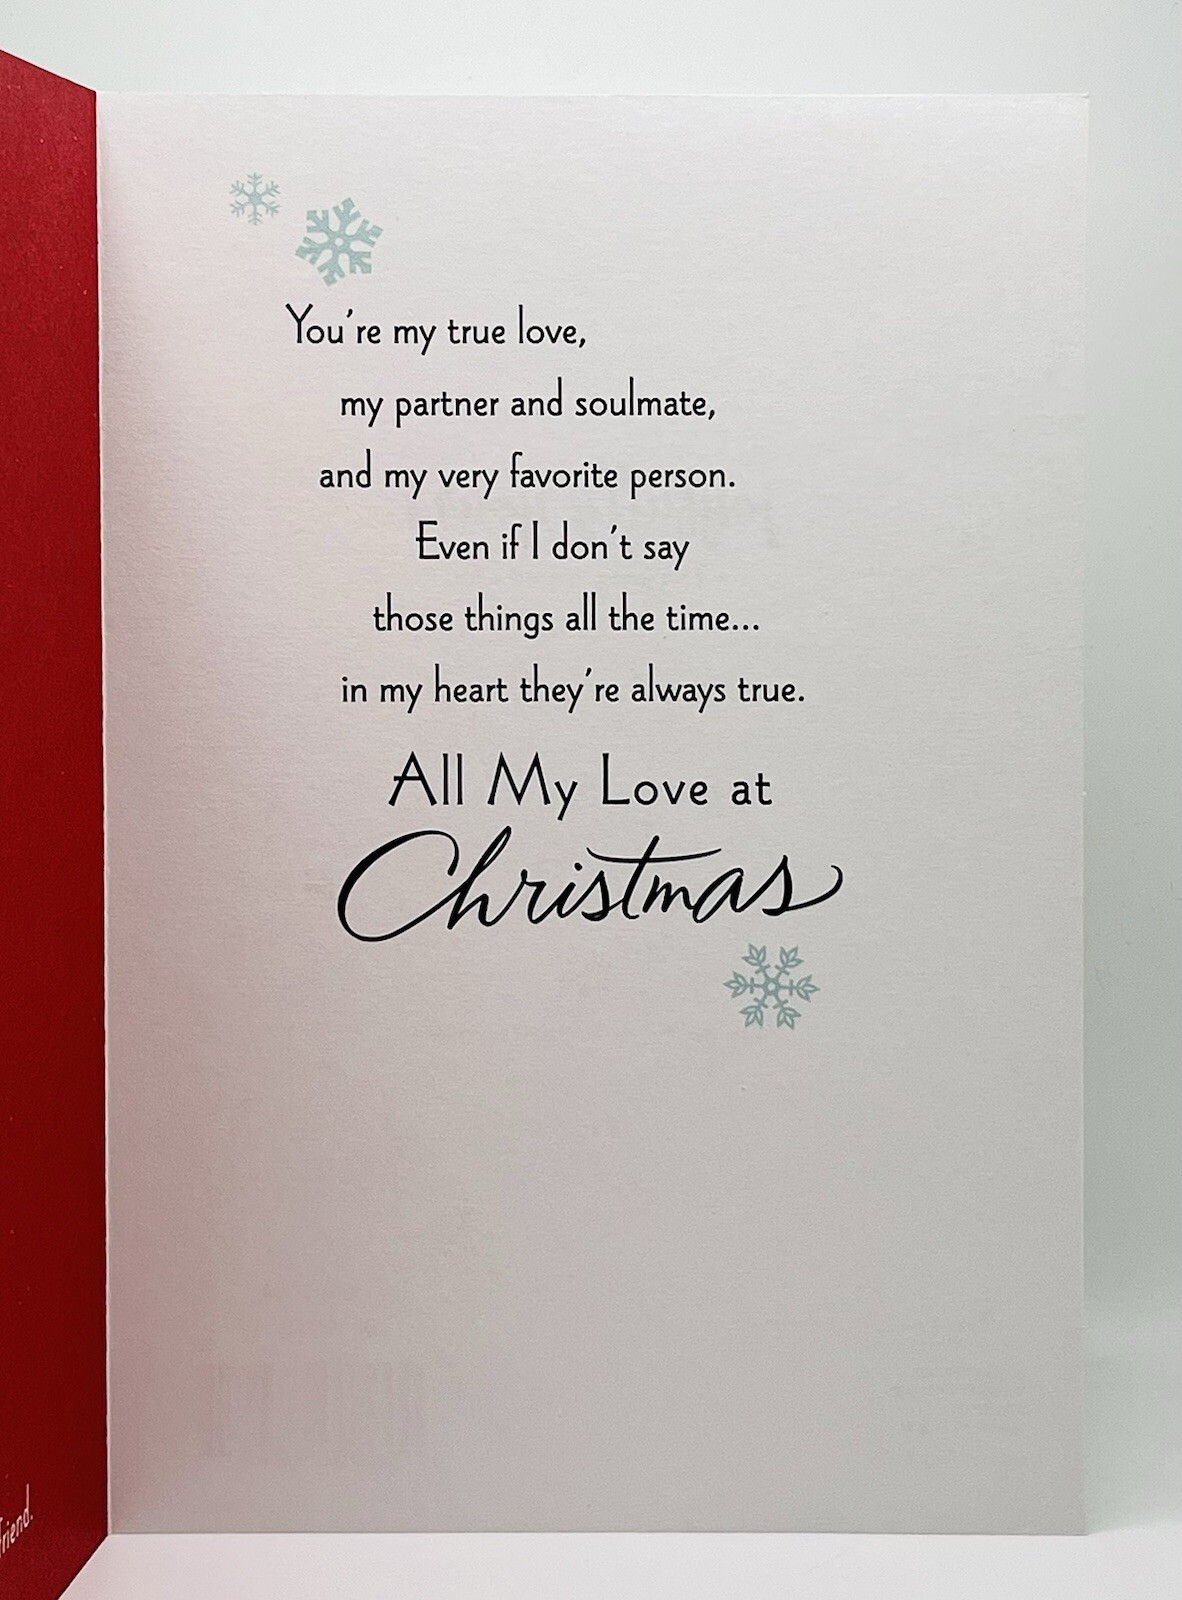 You're my true love,
my partner and soulmate,
and my very favorite person.
Even if I don't say
those things all the time...
in my heart they're always true.
All My Love at
Christmas
friend.